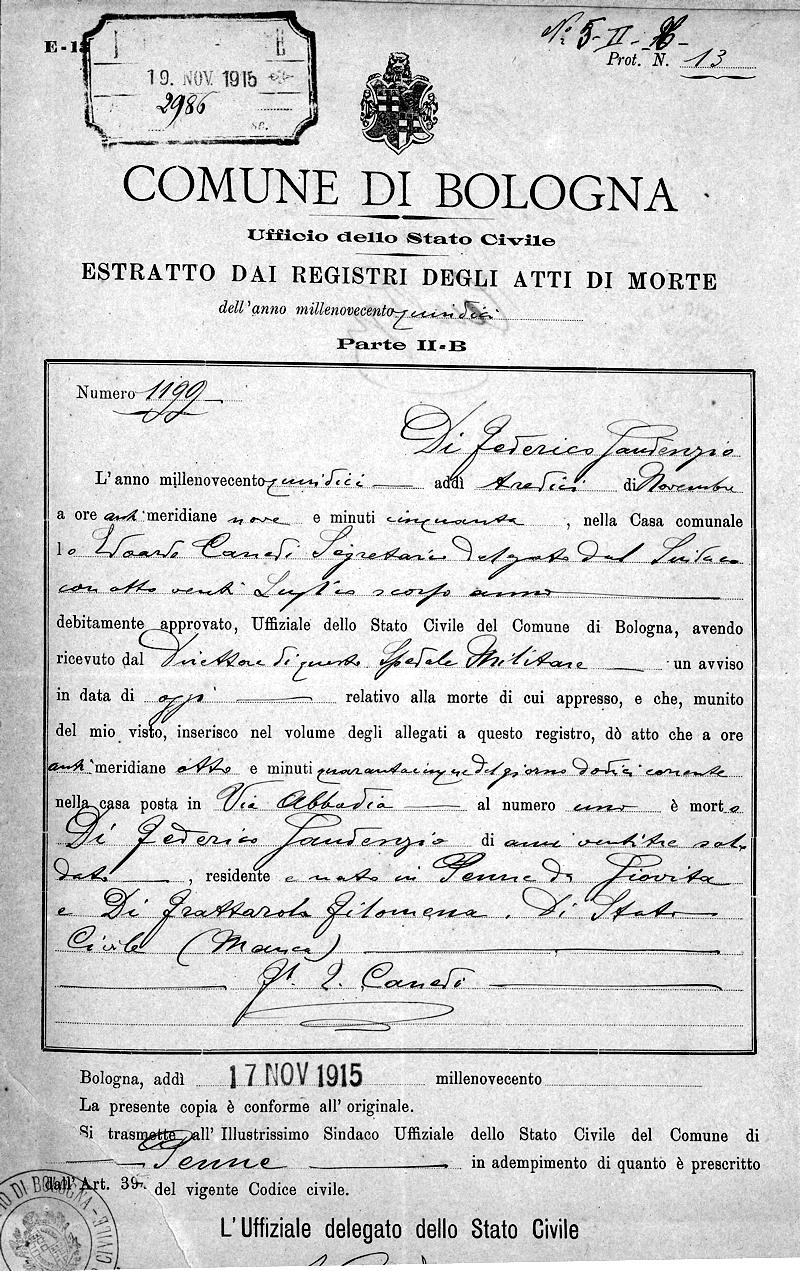 E-13
19. NOV 1915
2986
Nº 5-II-B-
Prot. N. 13
COMUNE DI BOLOGNA
Ufficio dello Stato Civile
ESTRATTO DAI REGISTRI DEGLI ATTI DI MORTE
dell'anno millenovecento quindici
Parte II-B
Numero 1199
Di Federico Gaudenzio
L'anno millenovecento quindici addì tredici di Novembre
a ore anti meridiane nove e minuti cinquanta, nella Casa comunale
Io Edoardo Canedi Segretario delegato dal Sindaco
con atto venti Luglio scorso anno
debitamente approvato, Uffiziale dello Stato Civile del Comune di Bologna, avendo
ricevuto dal Direttore di questo Spedale Militare un avviso
in data di oggi relativo alla morte di cui appresso, e che, munito
del mio visto, inserisco nel volume degli allegati a questo registro, dò atto che a ore
anti meridiane otto e minuti quarantacinque del giorno dodici corrente
nella casa posta in Via Abbadia al numero uno è morto
Di Federico Gaudenzio di anni ventitre sol-
dato, residente e nato in Penne da Giovita
e Di Frattarola Filomena. Di Stato
Civile (Manca)
Fto E. Canedi
Bologna, addì 17 NOV 1915 millenovecento
La presente copia è conforme all'originale.
Si trasmette all'Illustrissimo Sindaco Uffiziale dello Stato Civile del Comune di
Penne in adempimento di quanto è prescritto
dall'Art. 397. del vigente Codice civile.
L'Uffiziale delegato dello Stato Civile